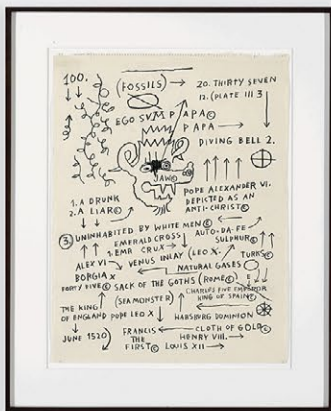 100.
(FOSSILS) → 20. THIRTY SEVEN
12. (PLATE III 3
EGO SUM PAPA©
PAPA →
DIVING BELL 2.
JAW©
1. A DRUNK
2. A LIAR©
POPE ALEXANDER VI.
DEPICTED AS AN
ANTI-CHRIST©
③ UNINHABITED BY WHITE MEN©
EMERALD CROSS↓ AUTO-DA-FE
1. EMR CRUX → SULPHUR©
ALEX VI → VENUS INLAY (LEO X. TURKS©
BORGIA X ← NATURAL GASES
FORTY FIVE© SACK OF THE GOTHS (ROME©
CHARLES FIVE EMPEROR
KING OF SPAIN©
THE KING (SEA MONSTER)
OF ENGLAND POPE LEO X HABSBURG DOMINION
← CLOTH OF GOLD©
JUNE 1520) FRANCIS HENRY VIII. →
THE FIRST© LOUIS XII →